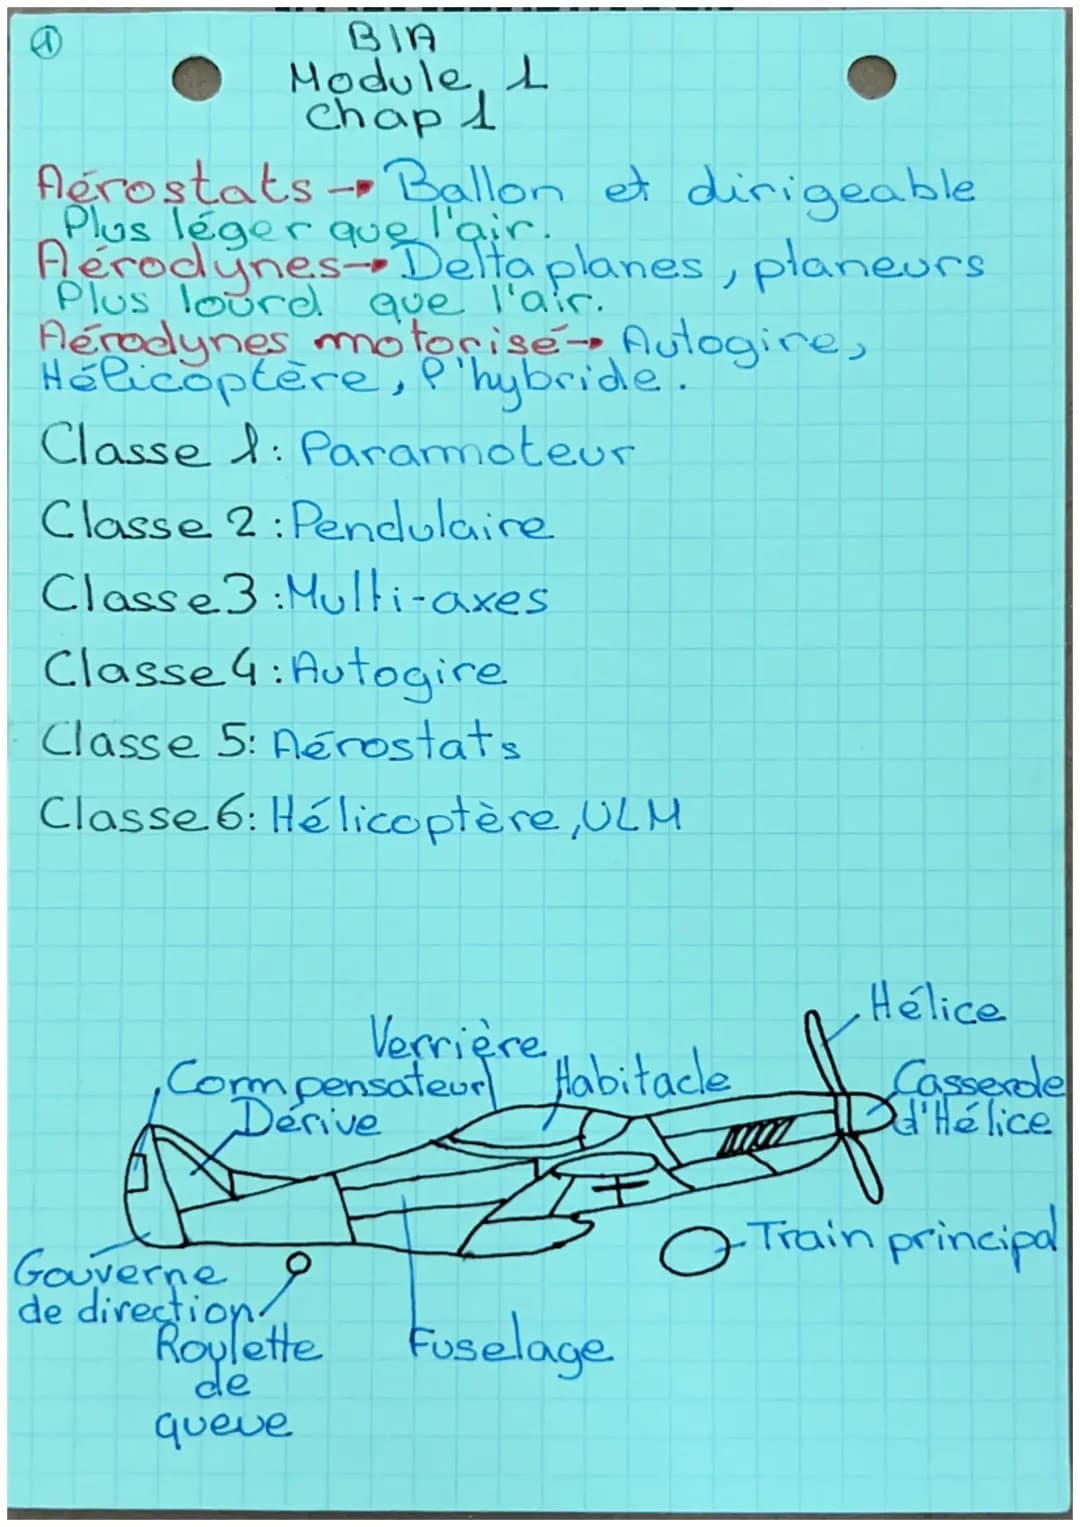 1
BIA
Module 1
Chap 1
Aérostats → Ballon et dirigeable
Plus léger que l'air.
Aérodynes → Delta planes, planeurs
Plus lourd que l'air.
Aérodynes motorisé → Autogire,
Hélicoptère, l'hybride.
Classe 1: Paramoteur
Classe 2: Pendulaire
Classe 3: Multi-axes
Classe 4: Autogire
Classe 5: Aérostats
Classe 6: Hélicoptère, ULM
Hélice
Verrière
Compensateur
Habitacle
Casserole
d'Hélice
Dérive
Train principal
Gouverne
de direction
Roulette
de
queue
Fuselage